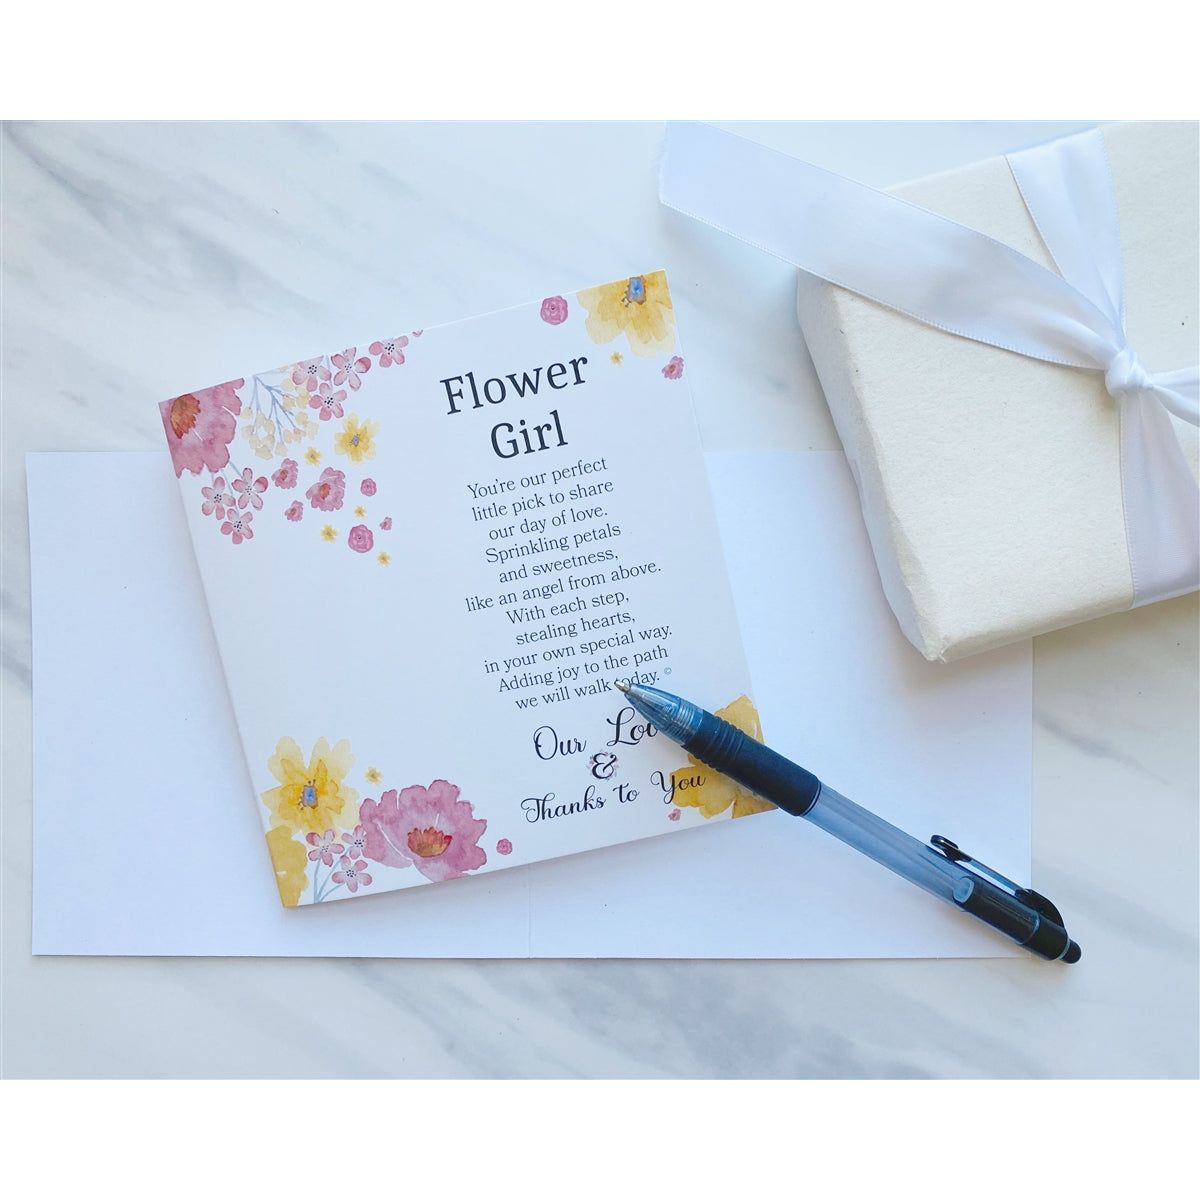 Flower
Girl
You're our perfect
little pick to share
our day of love.
Sprinkling petals
and sweetness,
like an angel from above.
With each step,
stealing hearts,
in your own special way.
Adding joy to the path
we will walk today. ©
Our Love
&
Thanks to You